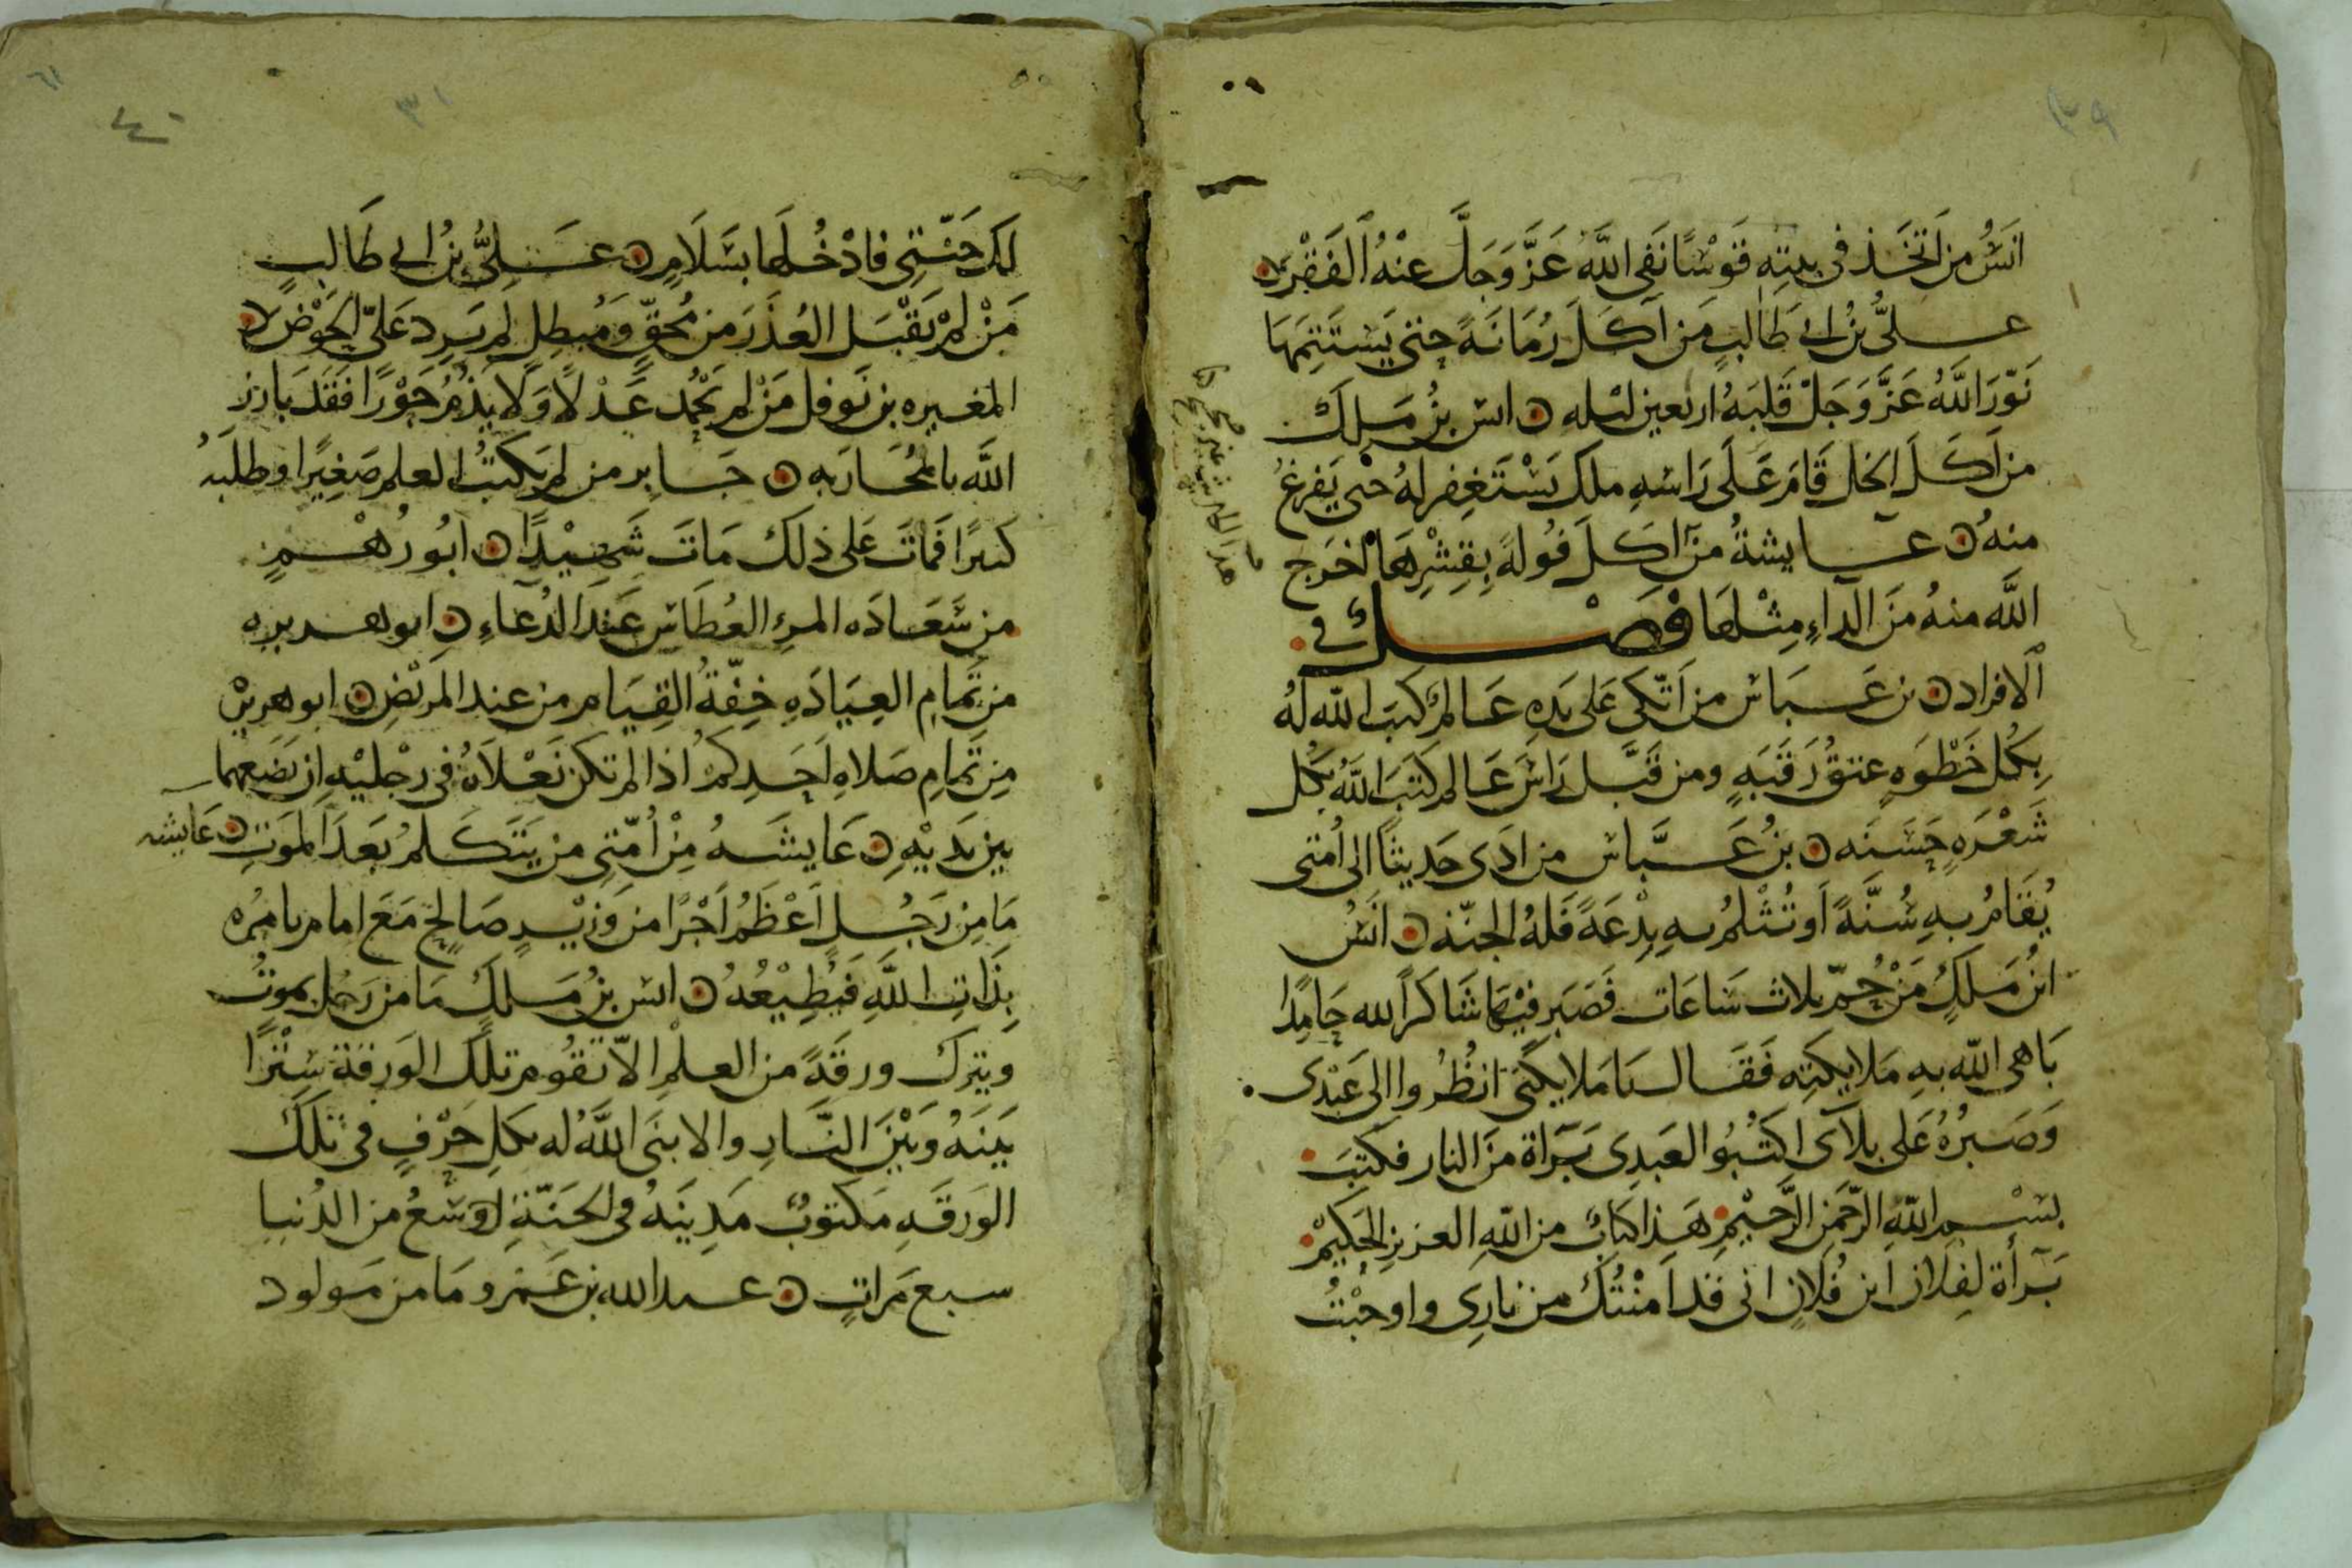 ٣٩
انَسُ من اتخَذ في بيتِه قَوْسًا نَفى اللَّهُ عَزَّ وَجَلَّ عنْهُ الفَقْرَ
عليُّ بنُ ابي طَالبٍ مَن اَكَلَ رُمَانَةً حتى يَسْتَتِمَهَا
نَوّرَ اللَّهُ عَزَّ وَجَلَّ قَلبَهُ اربعين ليله ن انس بنُ مَلِك
من اَكَلَ الخل قَامَ عَلَى رَاسِهِ ملك يَسْتَغفِر لهُ حتى يَفرغُ
منهُ ن عايشةُ من اكَلَ فُولةً بِقِشْرِهَا اخرَج
اللَّه منهُ منَ الداءِ مِثْلهَا فَصْلٌ في
الافراد ن بن عَبَاس من اتّكى عَلى يَدِهِ عَالمٌ كَتبَ اللّه لهُ
بِكُل خَطْوَهٍ عتقُ رَقَبَهٍ ومن قَبَّل رَاسَ عَالم كتَبَ اللَّهُ بكُل
شَعْرَهٍ حَسَنَه ن بنُ عَبَّاس من ادَى حَديثًا الى اُمتى
يُقَامُ بهِ سُنَّةً اَو تُثْلمُ بهِ بِدْعَةً فَلهُ الجنّه ن انَسُ
ابنُ مَلكٍ مَنْ حُمّ ثلاث سَاعَات فَصَبر فيْهَا شَاكرًا لله حَامِدًا
بَاهى اللّه بهِ مَلايكتِه فَقَال يَا مَلايكتى انظُروا الى عَبْدى
وَصَبرُهُ عَلى بلآى اكتُبُوا لعَبدِى بَرَاة منَ النار فكتبَ
بسْمِ اللهِ الرّحمَن الرَّحيْمِ هَذا كتابٌ من اللهِ العزيز الحَكيْم
بَرأة لفِلان ابن فُلانٍ انى قَد اَمَنْتُكَ من نارِى واوجَبْتُ
٤٠
٣١
٦١
لك جَنّتى فادْخُلهَا بسَلَامٍ ن عَلِىُّ بنُ ابى طَالبٍ
مَنْ لمْ يَقْبَل العُذَرَ من مُحقٍّ وَمُبطِلٍ لم يَرِد عَلىّ الحَوْضَ
المغيره بن نَوفل مَنْ لم يَحْمُد عَدْلًا وَلا يَذُمُ جَوْرًا فقَد بَارز
اللَّه بالمحَاربَه ن جَابر من لم يَكتُب العلم صَغِيرًا وطلَبَهُ
كبيرًا فمَاتَ عَلى ذلكَ مَاتَ شَهِيْدًا ن ابُو رُهْمٍ
من سَعَادَه المرءِ العُطَاس عَندَ الدُعَآءِ ن ابو هريره
من تَمامِ العِيَادَهِ خِفّةُ القِيَام من عند المَريْضِ ن ابو هريره
مِن تَمامِ صَلاهِ اَحَدِكمُ اذا لم تكن نَعْلاهُ فى رجْليْهِ ان يَضَعهما
بين يَدَيْهِ ن عَايشَهُ مِنْ اُمّتِى من يَتَكَلمُ بَعَدَ المَوَتِ ن عَايشه
مَا مِن رَجُلٍ اَعْظَمُ اَجْرًا من وَزيْرٍ صَالِحٍ مَعَ امام يامُره
بِذَاتِ اللَّهِ فَيُطِيْعُهُ ن انس بنُ مَلك مَا من رَجُل يموتُ
ويترك ورقَةً من العلْمِ الاّ تَقُوم تلكَ الوَرقَة سِتْرًا
بَينَهُ وَبَيْنَ النَّارِ والا بنَى اللَّهُ له بكلِ حَرْفٍ فى تلكَ
الوَرقَهِ مَكتوبٌ مَدِينَه فى الجَنّةِ اوسَعُ من الدُنيا
سبع مَراتٍ ن عبد الله بن عَمرو مَا من مَولود